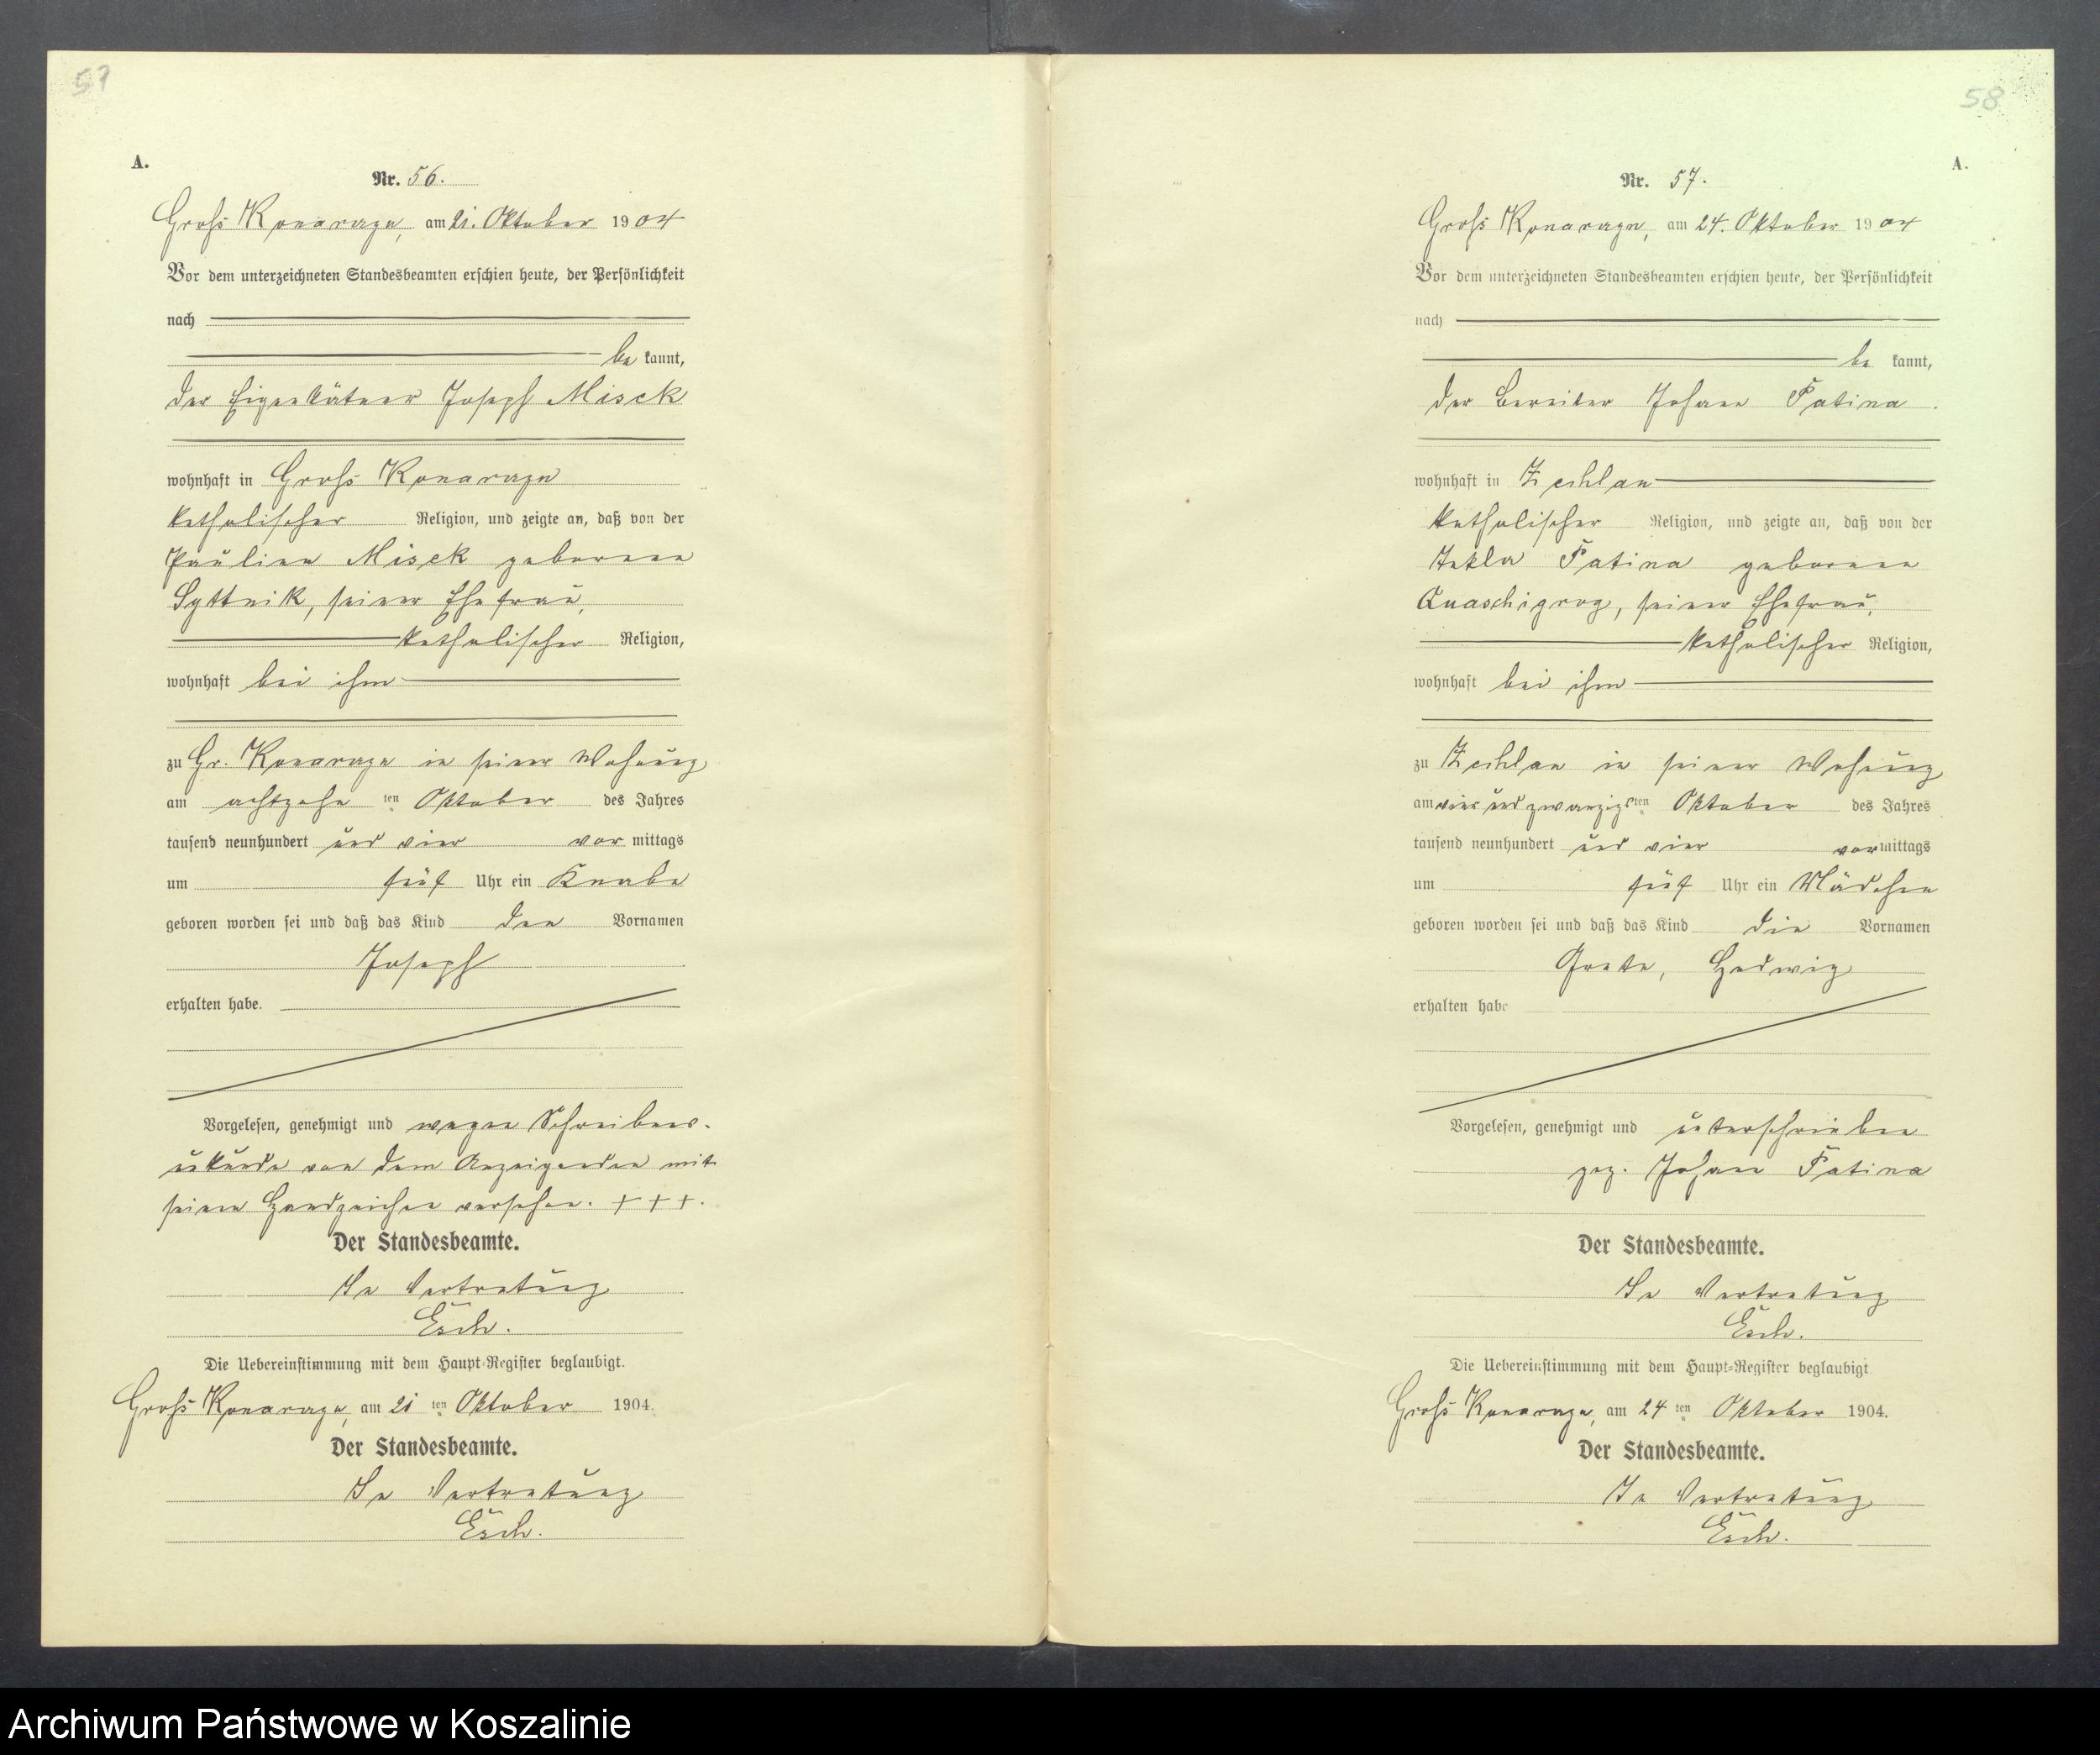 57
A.
Nr. 56.
Groß Konarzyn, am 21. Oktober 1904
Vor dem unterzeichneten Standesbeamten erschien heute, der Persönlichkeit
nach
be kannt,
der Eigenkätner Joseph Misck
wohnhaft in Groß Konarzyn
katholischer Religion, und zeigte an, daß von der
Pauline Misck geborene
Syttnik, seiner Ehefrau,
katholischer Religion,
wohnhaft bei ihm
zu Gr. Konarzyn in seiner Wohnung
am achtzehn ten Oktober des Jahres
tausend neunhundert und vier vor mittags
um fünf Uhr ein Knabe
geboren worden sei und daß das Kind den Vornamen
Joseph
erhalten habe.
Vorgelesen, genehmigt und wegen Schreibens-
unkunde von dem Anzeigenden mit
seinem Handzeichen versehen. + + +.
Der Standesbeamte.
In Vertretung
Esch.
Die Uebereinstimmung mit dem Haupt-Register beglaubigt.
Groß Konarzyn, am 21 ten Oktober 1904.
Der Standesbeamte.
In Vertretung
Esch.
58
A.
Nr. 57.
Groß Konarzyn, am 24. Oktober 1904
Vor dem unterzeichneten Standesbeamten erschien heute, der Persönlichkeit
nach
be kannt,
der Bereiter Johann Patina
wohnhaft in Zechlau
katholischer Religion, und zeigte an, daß von der
Tekla Patina geborenen
Quaschigrog, seiner Ehefrau,
katholischer Religion,
wohnhaft bei ihm
zu Zechlau in seiner Wohnung
am vier und zwanzigsten Oktober des Jahres
tausend neunhundert und vier vormittags
um fünf Uhr ein Mädchen
geboren worden sei und daß das Kind die Vornamen
Grete, Hedwig
erhalten habe
Vorgelesen, genehmigt und unterschrieben
gez. Johann Patina
Der Standesbeamte.
In Vertretung
Esch.
Die Uebereinstimmung mit dem Haupt-Register beglaubigt
Groß Konarzyn, am 24 ten Oktober 1904.
Der Standesbeamte.
In Vertretung
Esch.
Archiwum Państwowe w Koszalinie